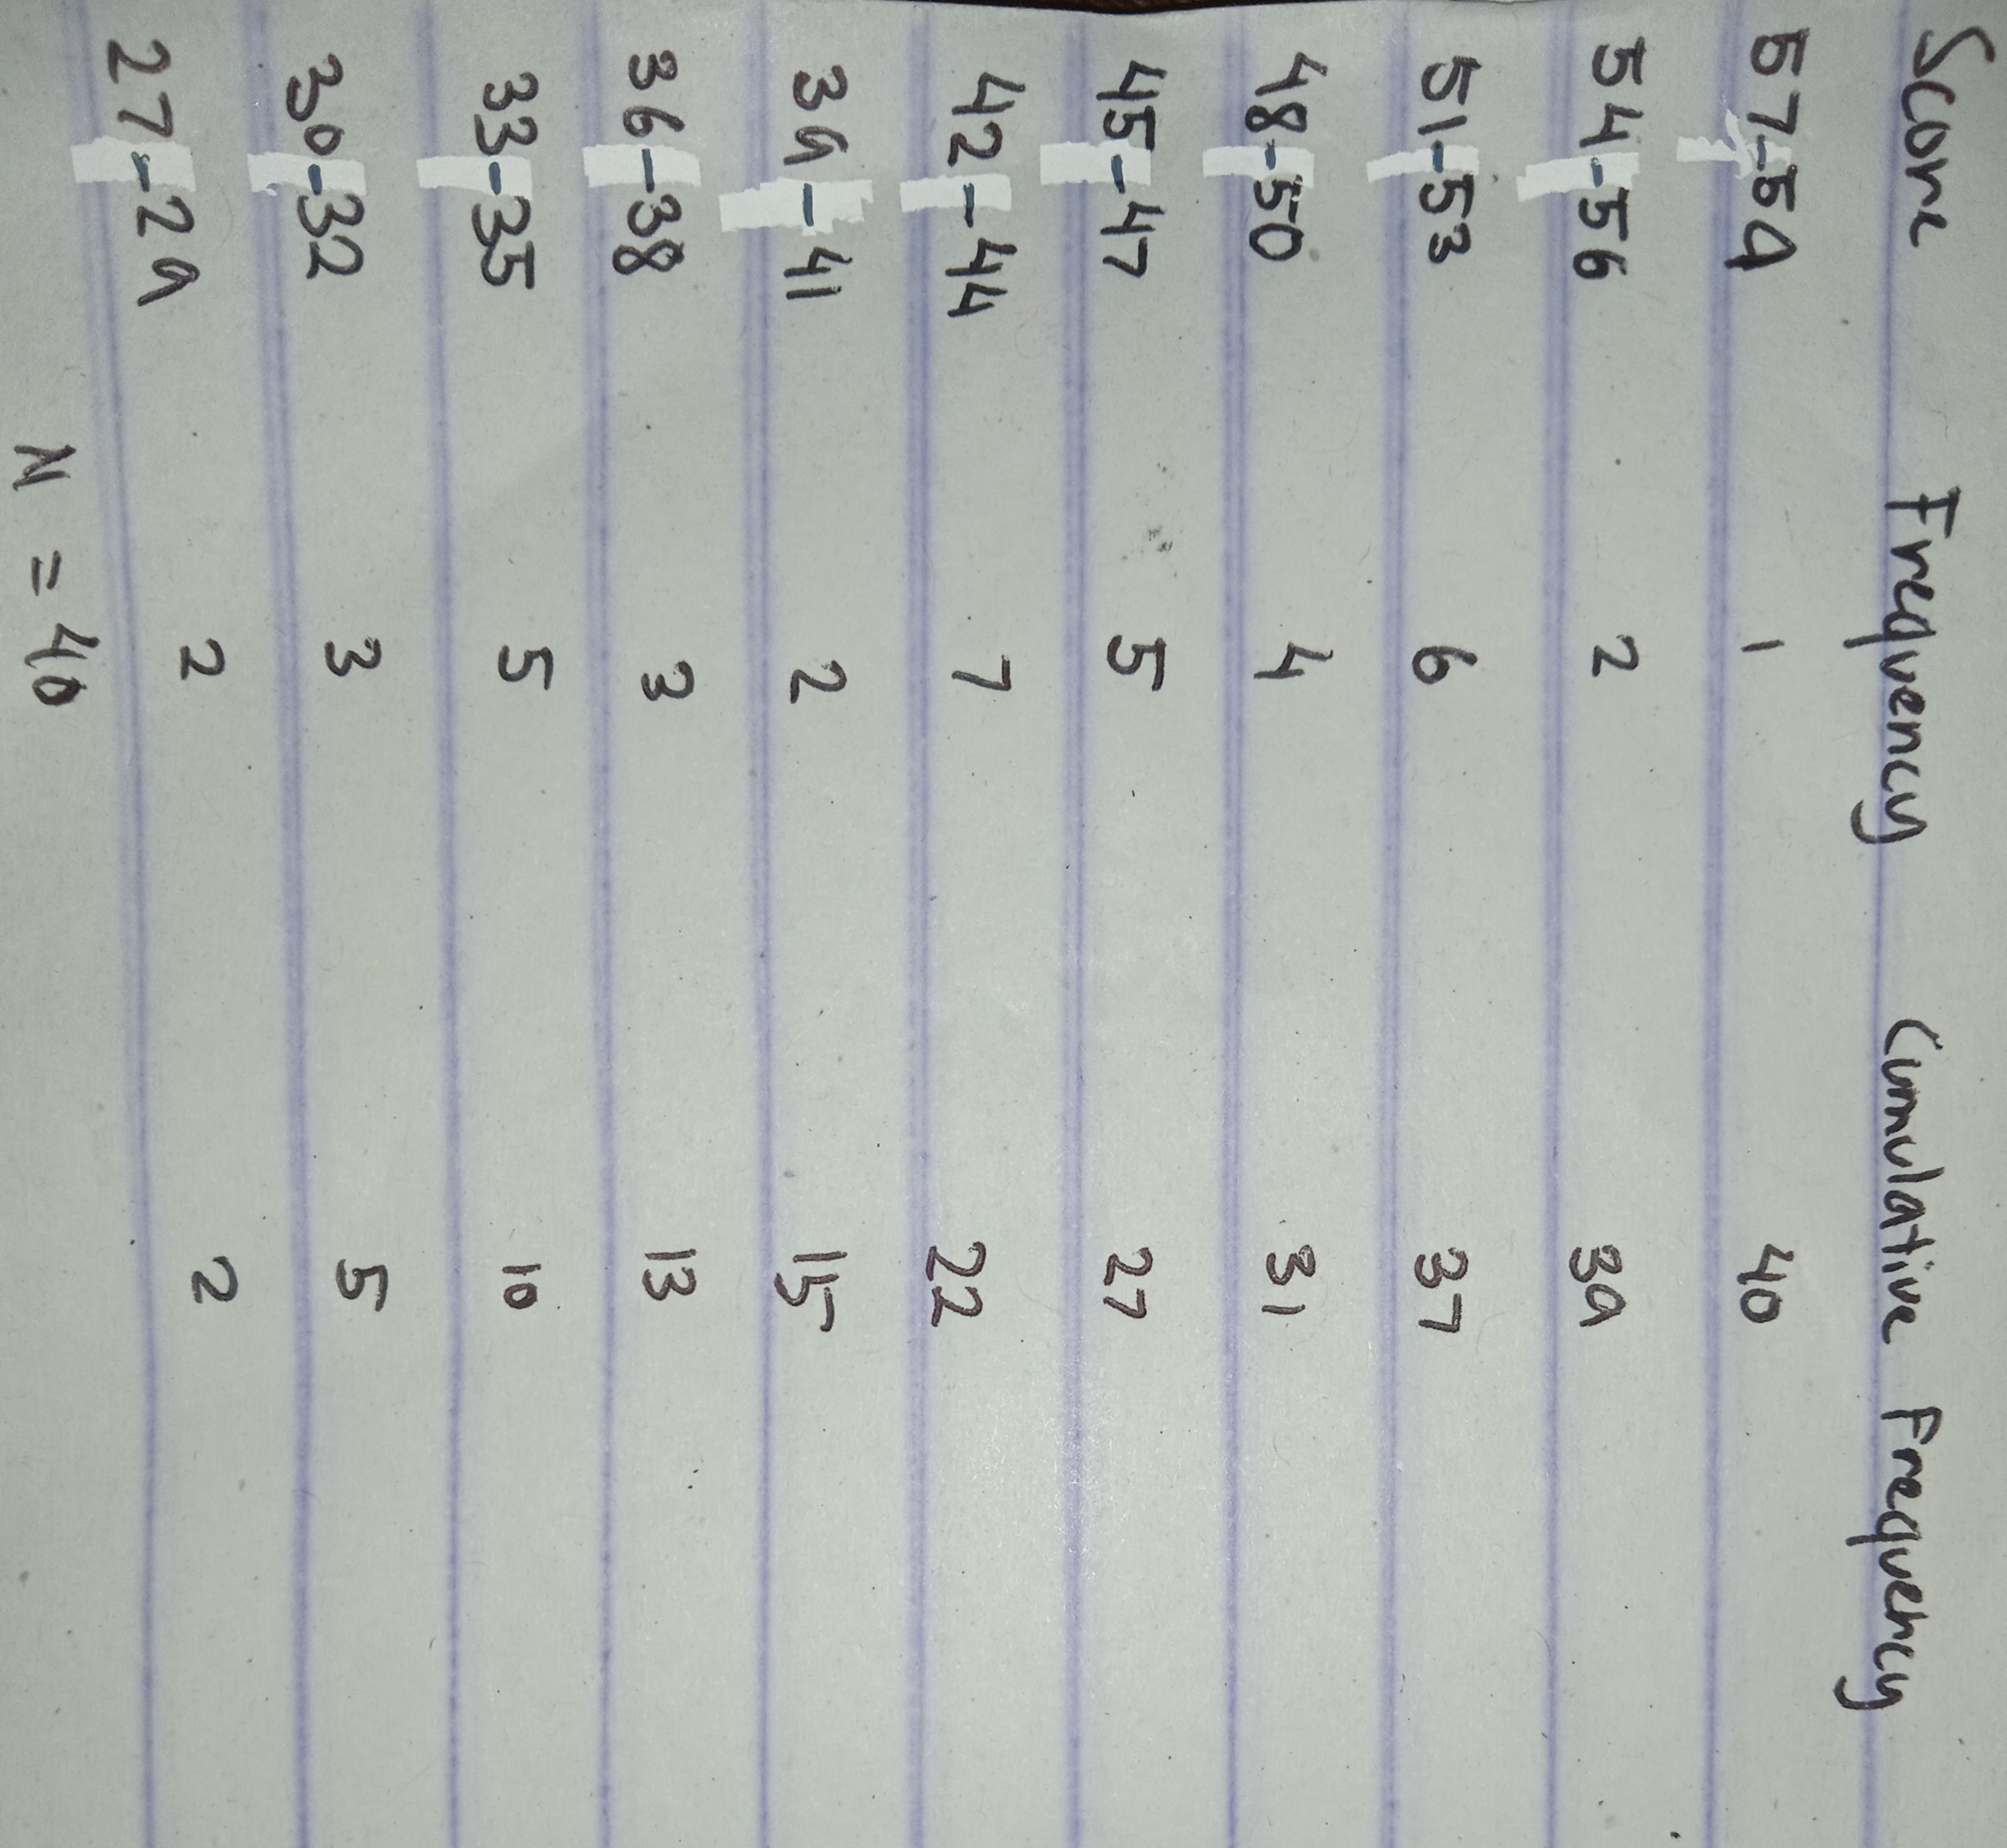 Score Frequency Cumulative Frequency
57-59 1 40
54-56 2 39
51-53 6 37
48-50 4 31
45-47 5 27
42-44 7 22
39-41 2 15
36-38 3 13
33-35 5 10
30-32 3 5
27-29 2 2
N = 40